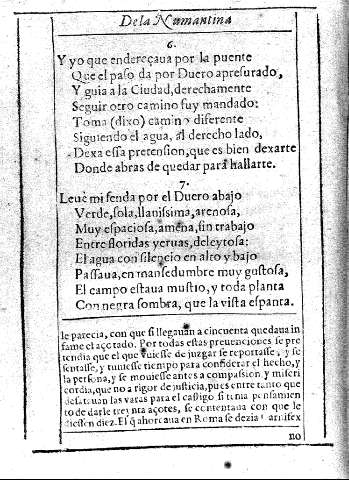 De la Numantina
6.
Y yo que endereçaua por la puente
Que el paso da por Duero apresurado,
Y guia a la Ciudad, derechamente
Seguir otro camino fuy mandado:
Toma (dixo) camino diferente
Siguiendo el agua, al derecho lado,
Dexa essa pretension, que es bien dexarte
Donde abras de quedar para hallarte.
7.
Leuè mi senda por el Duero abajo
Verde, sola, llanissima, arenosa,
Muy espaciosa, amena, sin trabajo
Entre floridas yeruas, deleytosa:
El agua con silencio en alto y bajo
Passaua, en mansedumbre muy gustosa,
El campo estaua mustio, y toda planta
Con negra sombra, que la vista espanta.
le parecia, con que si llegauan a cincuenta quedaua in
fame el açotado. Por todas estas preuenciones se pre
tendia que el que vuiesse de juzgar se reportasse, y se
sentasse, y tuuiesse tiempo para considerar el hecho, y
la persona, y se mouiesse antes a compassion y miseri
cordia, que no a rigor de justicia, pues entre tanto que
desatauan las varas para el castigo si tenia pensamien
to de darle treynta açotes, se contentaua con que le
diessen diez. El q̃ ahorcaua en Roma se dezia Carnifex
no